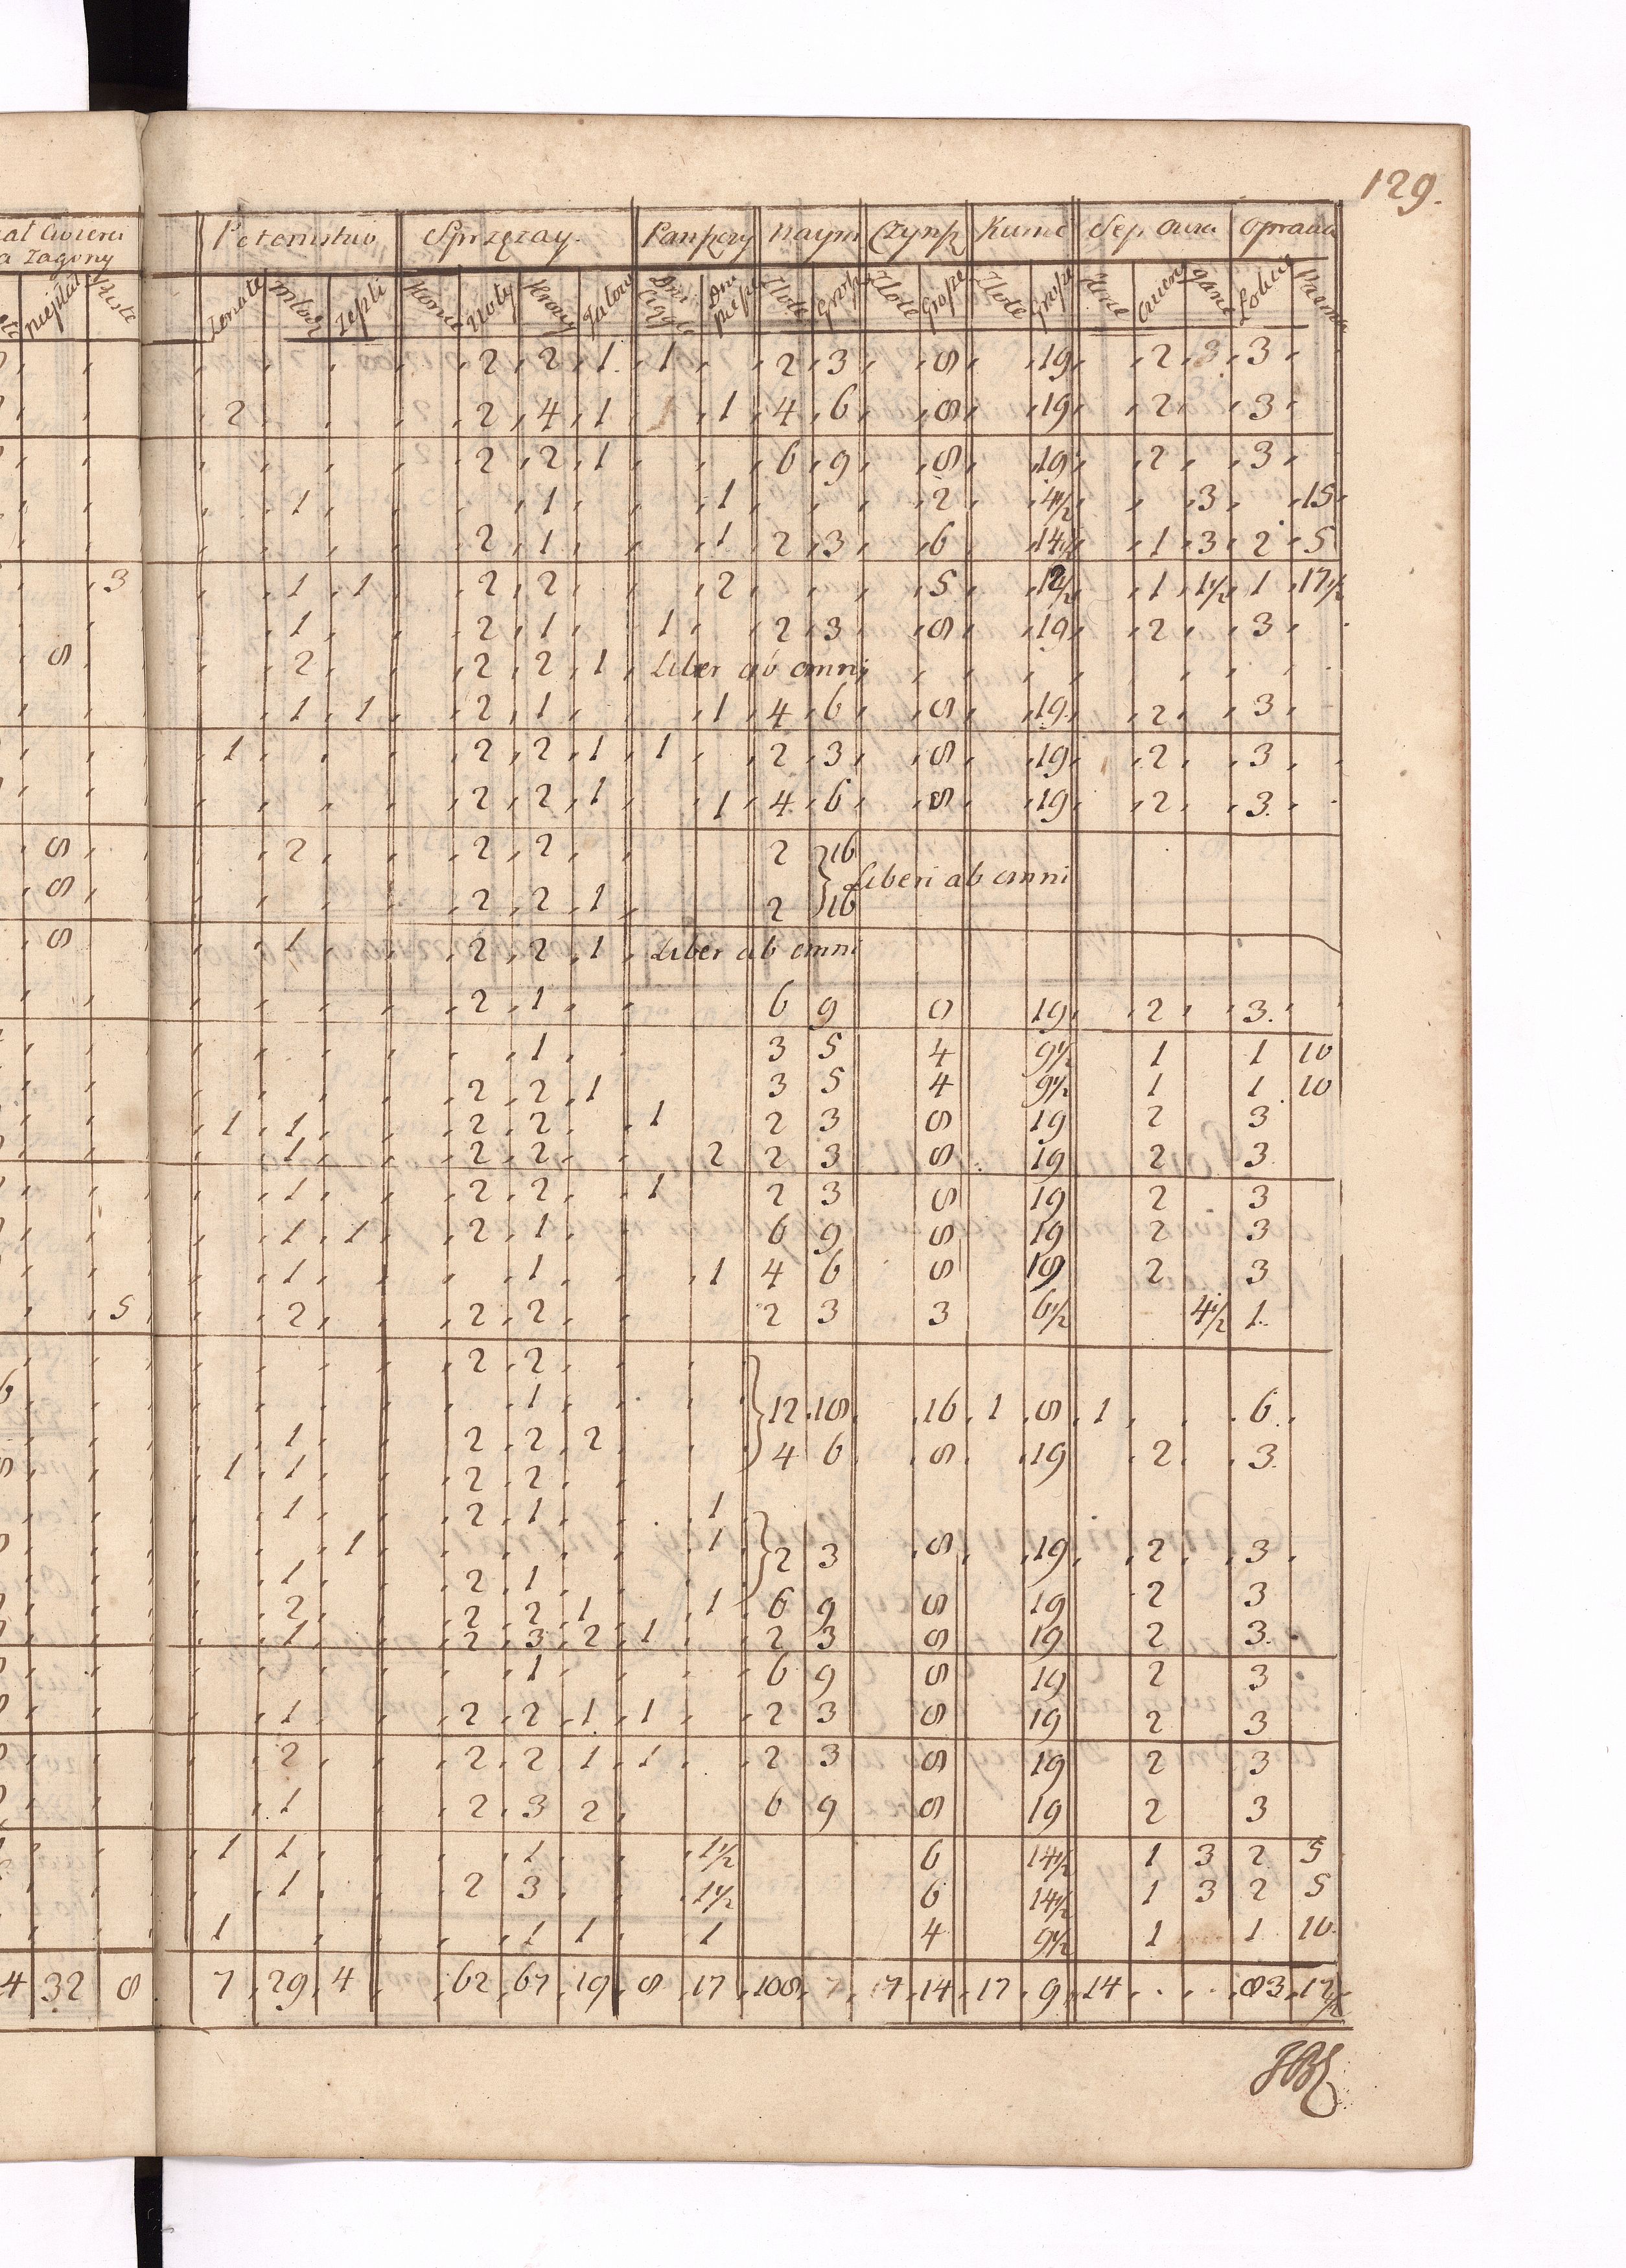 129.
Potomstwo Sprzęzay. Panszczy Naym Czynsz Kunne Sep owsa Oprawa
a Zagony
niepłat Puste Zonate Młodź Zepti Konie Woły Krowy Jałow Dni Ciągłe Dni piesze Złote Grosze Złote Grosze Złote Grosze
2 2 1 1 2 3 8 19 2 3 3
2 2 4 1 1 4 6 8 19 2 3
2 2 1 6 9 8 19 2 3
1 1 1 2 4½ 3 15
2 1 1 2 3 6 14½ 1 3 2 5
3 1 1 2 2 2 5 12½ 1 1½ 1 17½
1 2 1 1 2 3 8 19 2 3
8 2 2 2 1 Liber ab omni
1 1 2 1 1 4 6 8 19 2 3
1 2 2 1 1 2 3 8 19 2 3
2 2 1 1 4 6 8 19 2 3
8 2 2 2 2 16
Liberi ab omni
8 2 2 1 2 16
8 1 2 2 1 Liber ab omni
2 1 6 9 8 19 2 3
1 3 5 4 9½ 1 1 10
2 2 1 3 5 4 9½ 1 1 10
1 1 2 2 1 2 3 8 19 2 3
1 2 2 2 2 3 8 19 2 3
1 2 2 1 2 3 8 19 2 3
1 1 2 1 6 9 8 19 2 3
1 1 1 4 6 8 19 2 3
5 2 2 2 2 3 3 6½ 4½ 1
2 2
6 1 12 18 16 1 8 1 6
1 2 2 2 4 6 8 19 2 3
8 1 1 2 2
1 2 1 1
1 1 2 3 8 19 2 3
1 2 1
2 2 2 1 1 6 9 8 19 2 3
1 2 3 2 1 2 3 8 19 2 3
1 6 9 8 19 2 3
1 2 2 1 1 2 3 8 19 2 3
2 2 2 1 1 2 3 8 19 2 3
1 2 3 2 6 9 8 19 2 3
1 1 1 1½ 6 14½ 1 3 2 5
1 2 3 1½ 6 14½ 1 3 2 5
1 1 1 1 4 9½ 1 1 10
4 32 8 7 29 4 62 67 19 8 17 108 7 7 14 17 9 14 83 17½